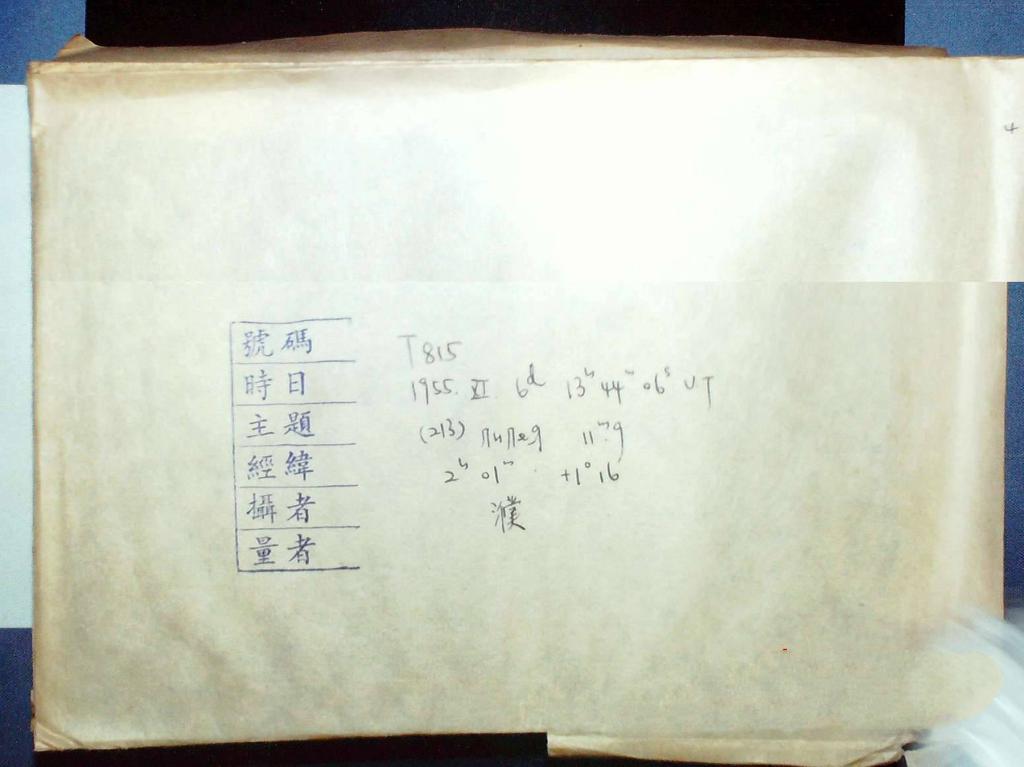 4
號碼 T815
時日 1955. XI. 6ᵈ 13ʰ 44ᵐ 06ˢ UT
主題 (213) 11ᵐ.9
經緯 2ʰ 01ᵐ. +1° 16
攝者 濮
量者